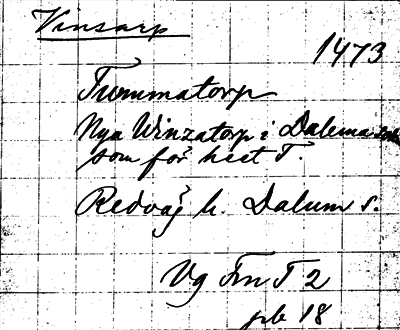 Vinsarp
1473
Tummatorp
Nya Winzatorp i Dalema
som för heet T.
Redväg h. Dalum s.
Vg Fm T 2
pb 18